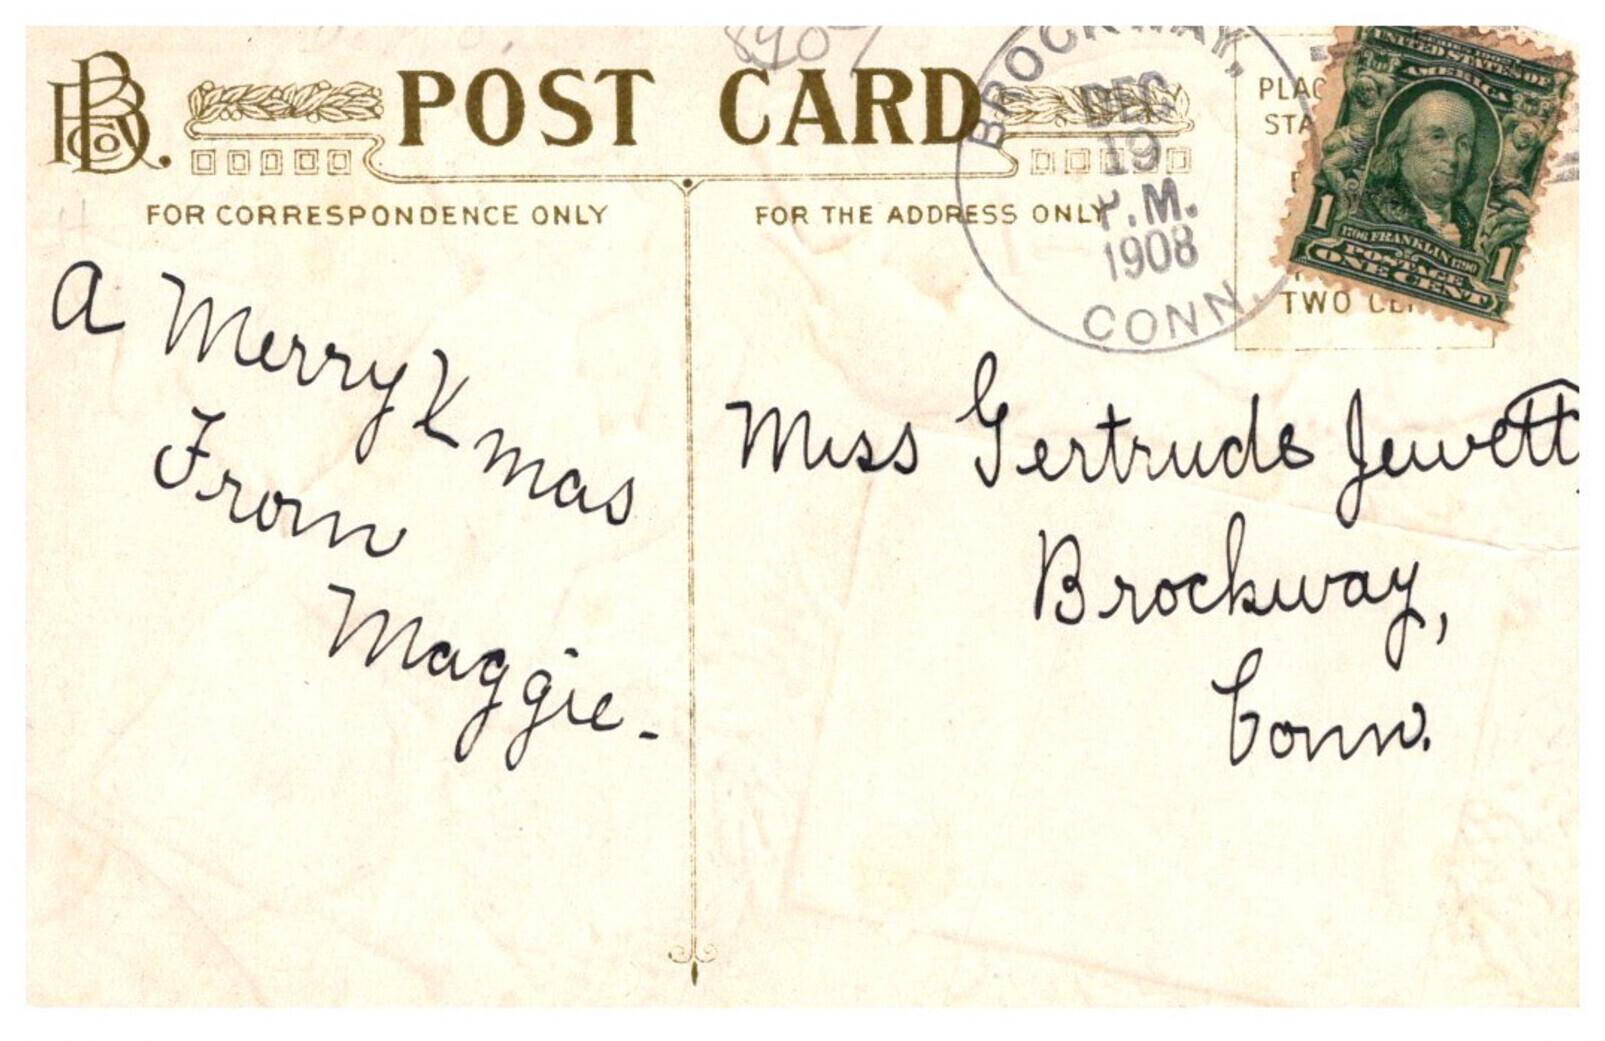 POST CARD
FOR CORRESPONDENCE ONLY
FOR THE ADDRESS ONLY
BROCKWAY,
DEC
19
P.M.
1908
CONN.
PLAC
STA
TWO CE
UNITED STATES OF
AMERICA
1706 FRANKLIN 1790
POSTAGE
1 ONE CENT 1
A Merry Xmas
From
Maggie.
Miss Gertrude Jewett,
Brockway,
Conn.